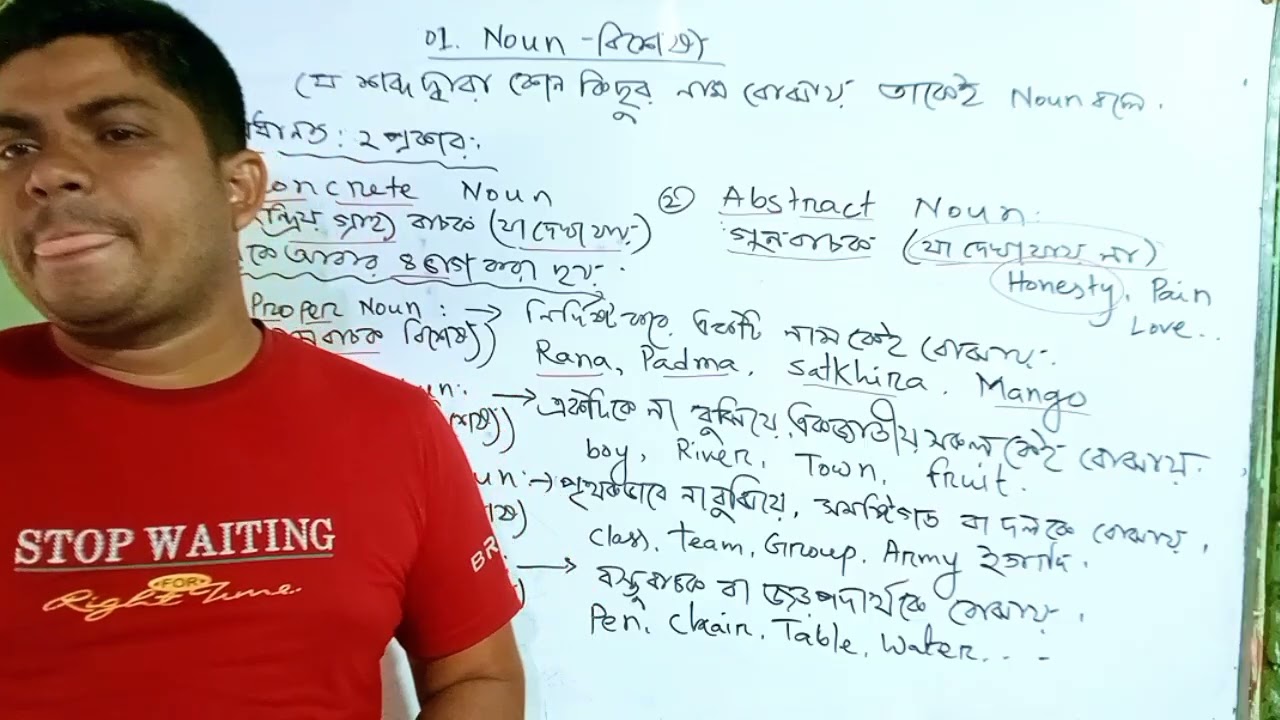 01. Noun - বিশেষ্য
যে শব্দ দ্বারা কোন কিছুর নাম বোঝায় তাকেই Noun বলে.
ধানত: ২ প্রকার:
oncrete Noun
ন্দ্রিয় গ্রাহ্য) বাচক (যা দেখা যায়)
কে আবার ৪ ভাগ করা হয়.
Proper Noun : →
বাচক বিশেষ্য))
নির্দিষ্ট করে একটি নাম কেই বোঝায়.
Rana, Padma, Satkhira, Mango
২) Abstract Noun:
গুনবাচক (যা দেখা যায় না)
Honesty, Pain
Love..
un: → একটিকে না বুঝিয়ে একজাতীয় সকল কেই বোঝায়.
শেষ্য))
boy, River, Town, fruit.
un: → পৃথকভাবে না বুঝিয়ে, সমষ্টিগত বা দলকে বোঝায়,
ষ্য)
class, team, Group, Army ইত্যাদি.
→ বস্তুবাচক বা জড়পদার্থকে বোঝায়.
Pen, Chair, Table, Water...
STOP WAITING
FOR
Right Time.
BR